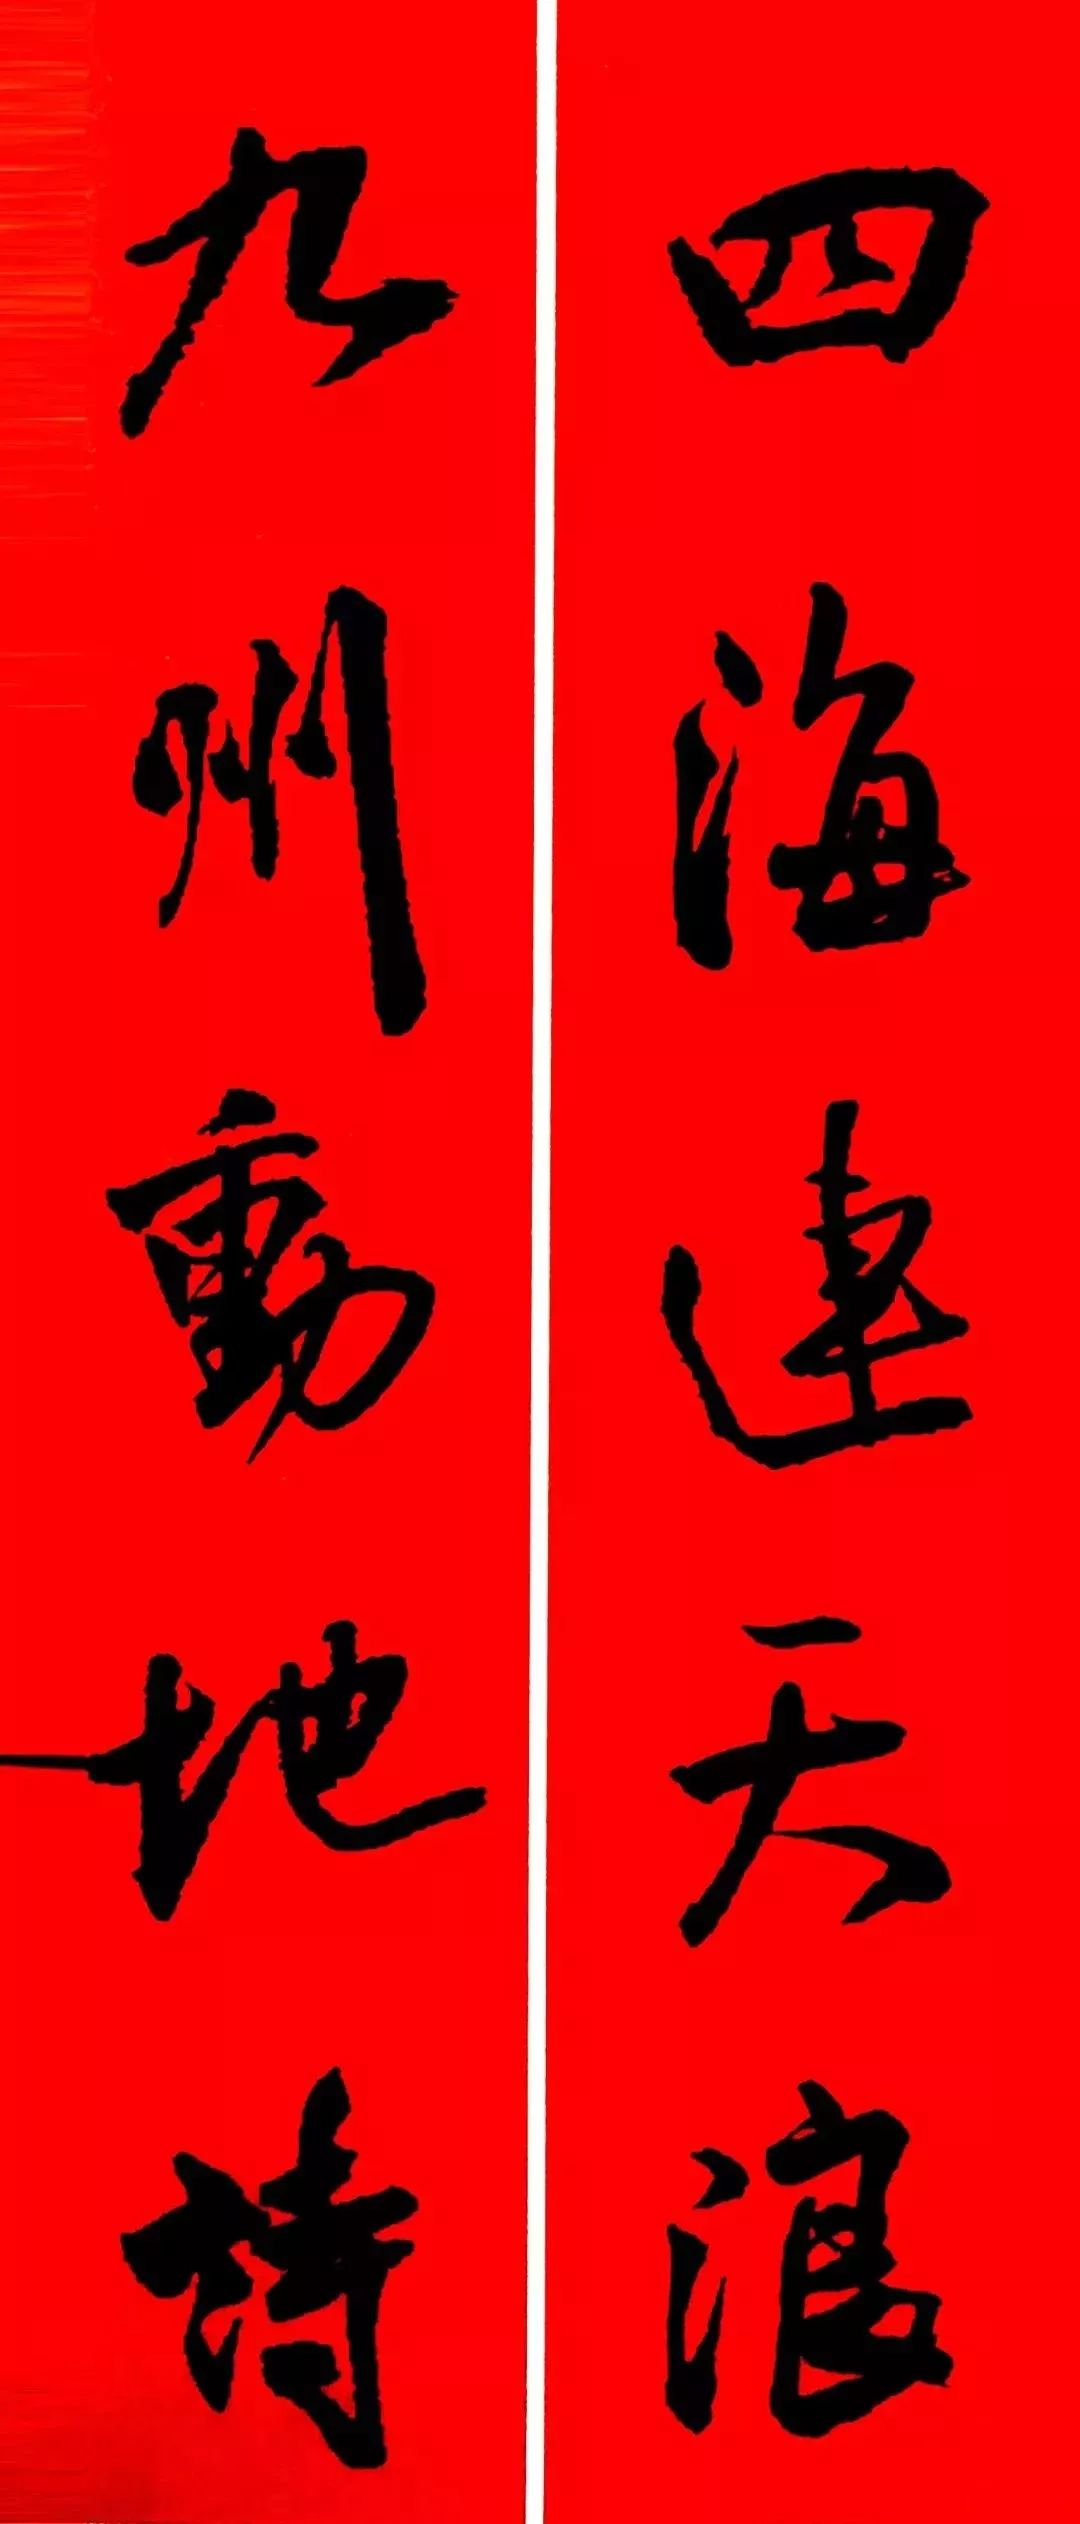 四海連天浪
九州動地詩